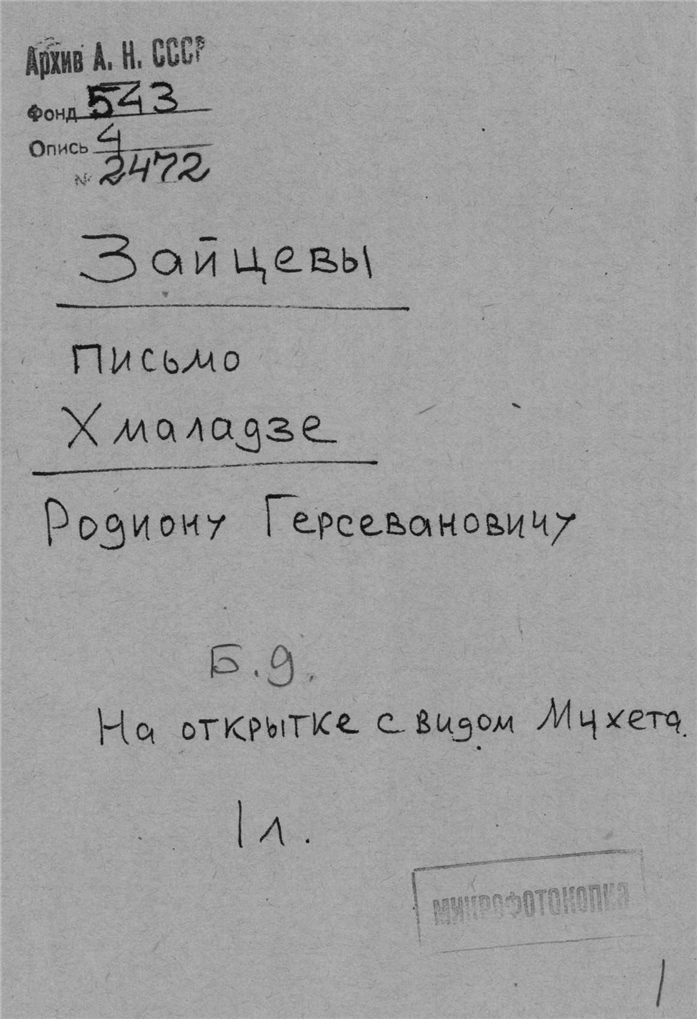 Архив А. Н. СССР
Фонд 543
Опись 4
№ 2472
Зайцевы
Письмо
Хмаладзе
Родиону Герсевановичу
Б.д.
На открытке с видом Мцхета.
1 л.
МИКРОФОТОКОПИЯ
1